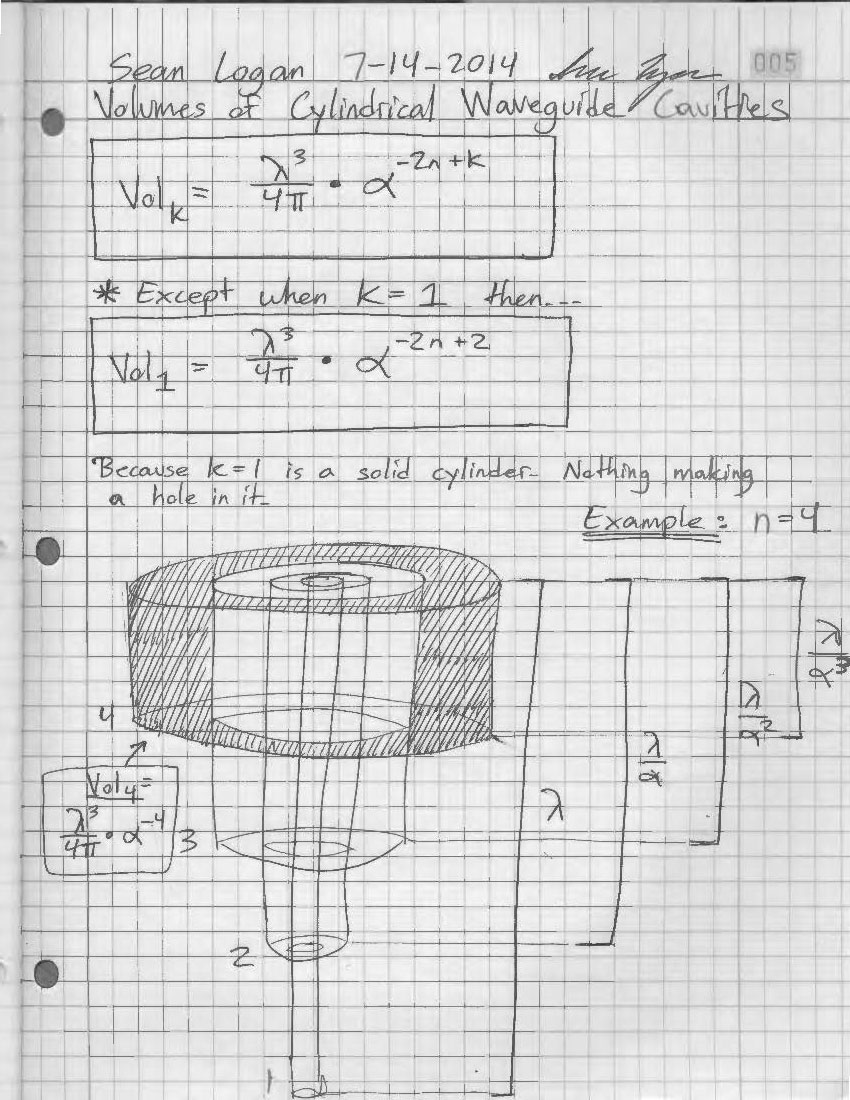 Sean Logan 7-14-2014
005
Volumes of Cylindrical Waveguide Cavities
Vol_k = λ³/4π • α^(-2n+k)
* Except when k=1 then....
Vol_1 = λ³/4π • α^(-2n+2)
Because k=1 is a solid cylinder- Nothing making
a hole in it-
Example: n=4
λ/α³
λ/α²
λ/α
λ
4
Vol_4 =
λ³/4π • α^-4
3
2
1